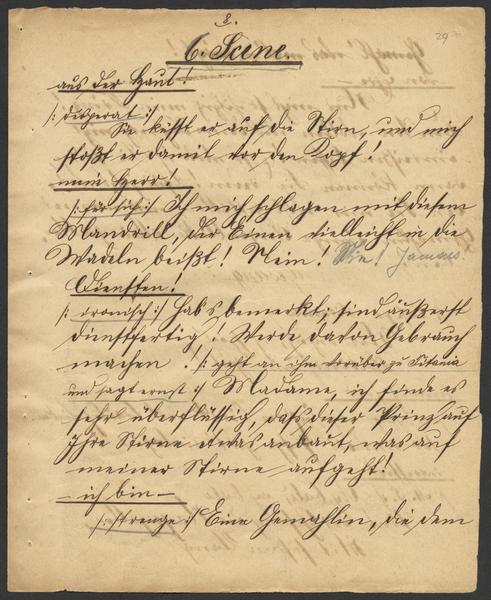 8.
29
6. Scene.
aus der Haut!
/: desperat :/
Sie küßt er auf die Stirn, und mich
stoßt er damit vor den Kopf!
mein Herr!
/: für sich :/ Ich mich schlagen mit diesem
Mandrill, der Einen vielleicht in die
Wadeln beißt! Nein! Nie! Jamais!
Diensten!
/: ironisch :/ Hab's bemerkt; sind äußerst
dienstfertig. Werde davon Gebrauch
machen! /: geht an ihm vorüber zu Titania
und sagt ernst :/ Madame, ich finde es
sehr überflüssich, dass dieser Prinz auf
Ihre Stirne etwas anbaut, was auf
meiner Stirne aufgeht!
– ich bin –
/: strenge :/ Eine Gemahlin, die dem